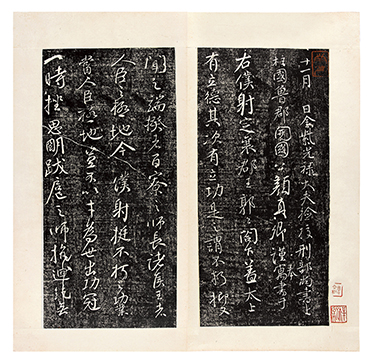 十一月 日金紫光祿大夫檢校刑部尚書上
柱國魯郡開國公顏真卿謹奉書于
右僕射定襄郡王郭公閤下蓋太上
有立德其次有立功是之謂不朽抑又
聞之端揆者百寮之師長諸侯王者
人臣之極地今僕射挺不朽之功業
當人臣極地豈不以才為世出功冠
一時挫思明跋扈之師抗迴紇無